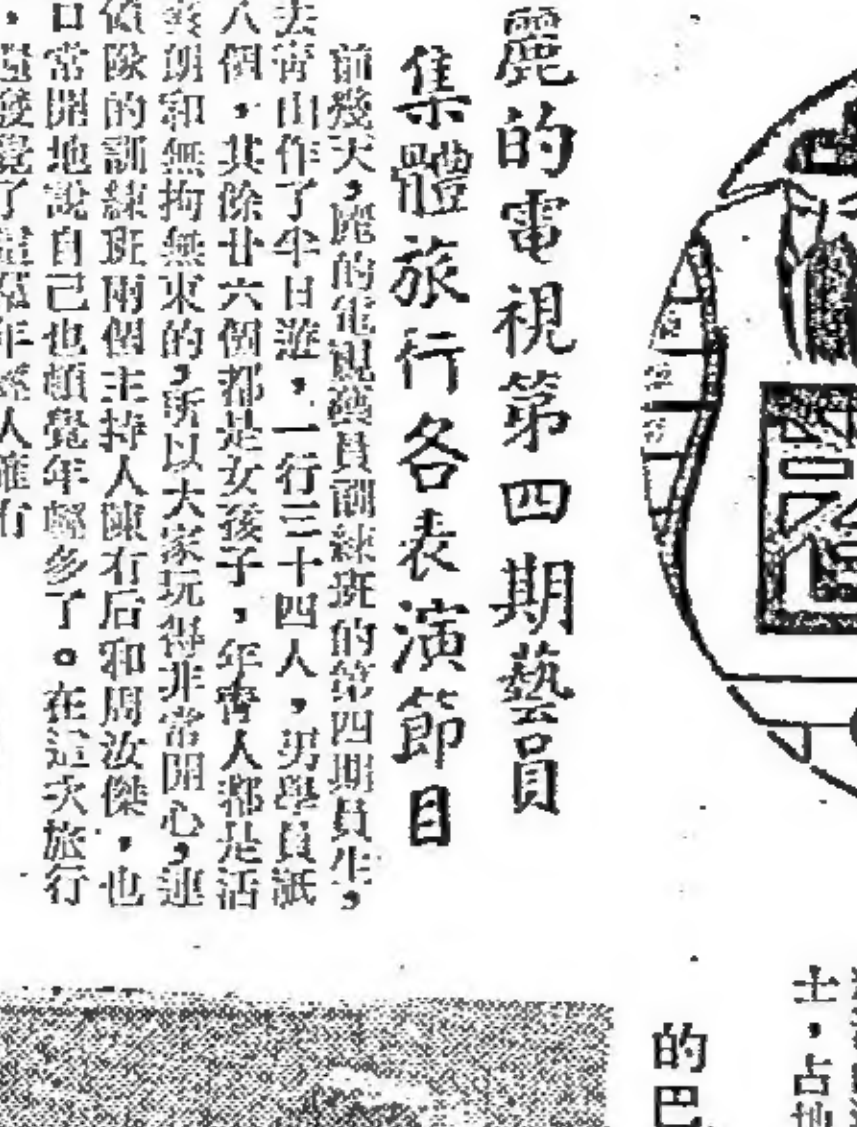 麗的電視第四期藝員
集體旅行各表演節目
前幾天，麗的電視藝員訓練班的第四期員生，
去靑山作了半日遊，一行三十四人，男學員祇
八個，其餘廿六個都是女孩子，年靑人都是活
朗和無拘無束的，所以大家玩得非常開心，連
隊的訓練班兩個主持人陳有后和周汝傑，也
日常開地說自己也頓覺年輕多了。在這次旅行
發覺了這年輕人確有
士，占地
的巴